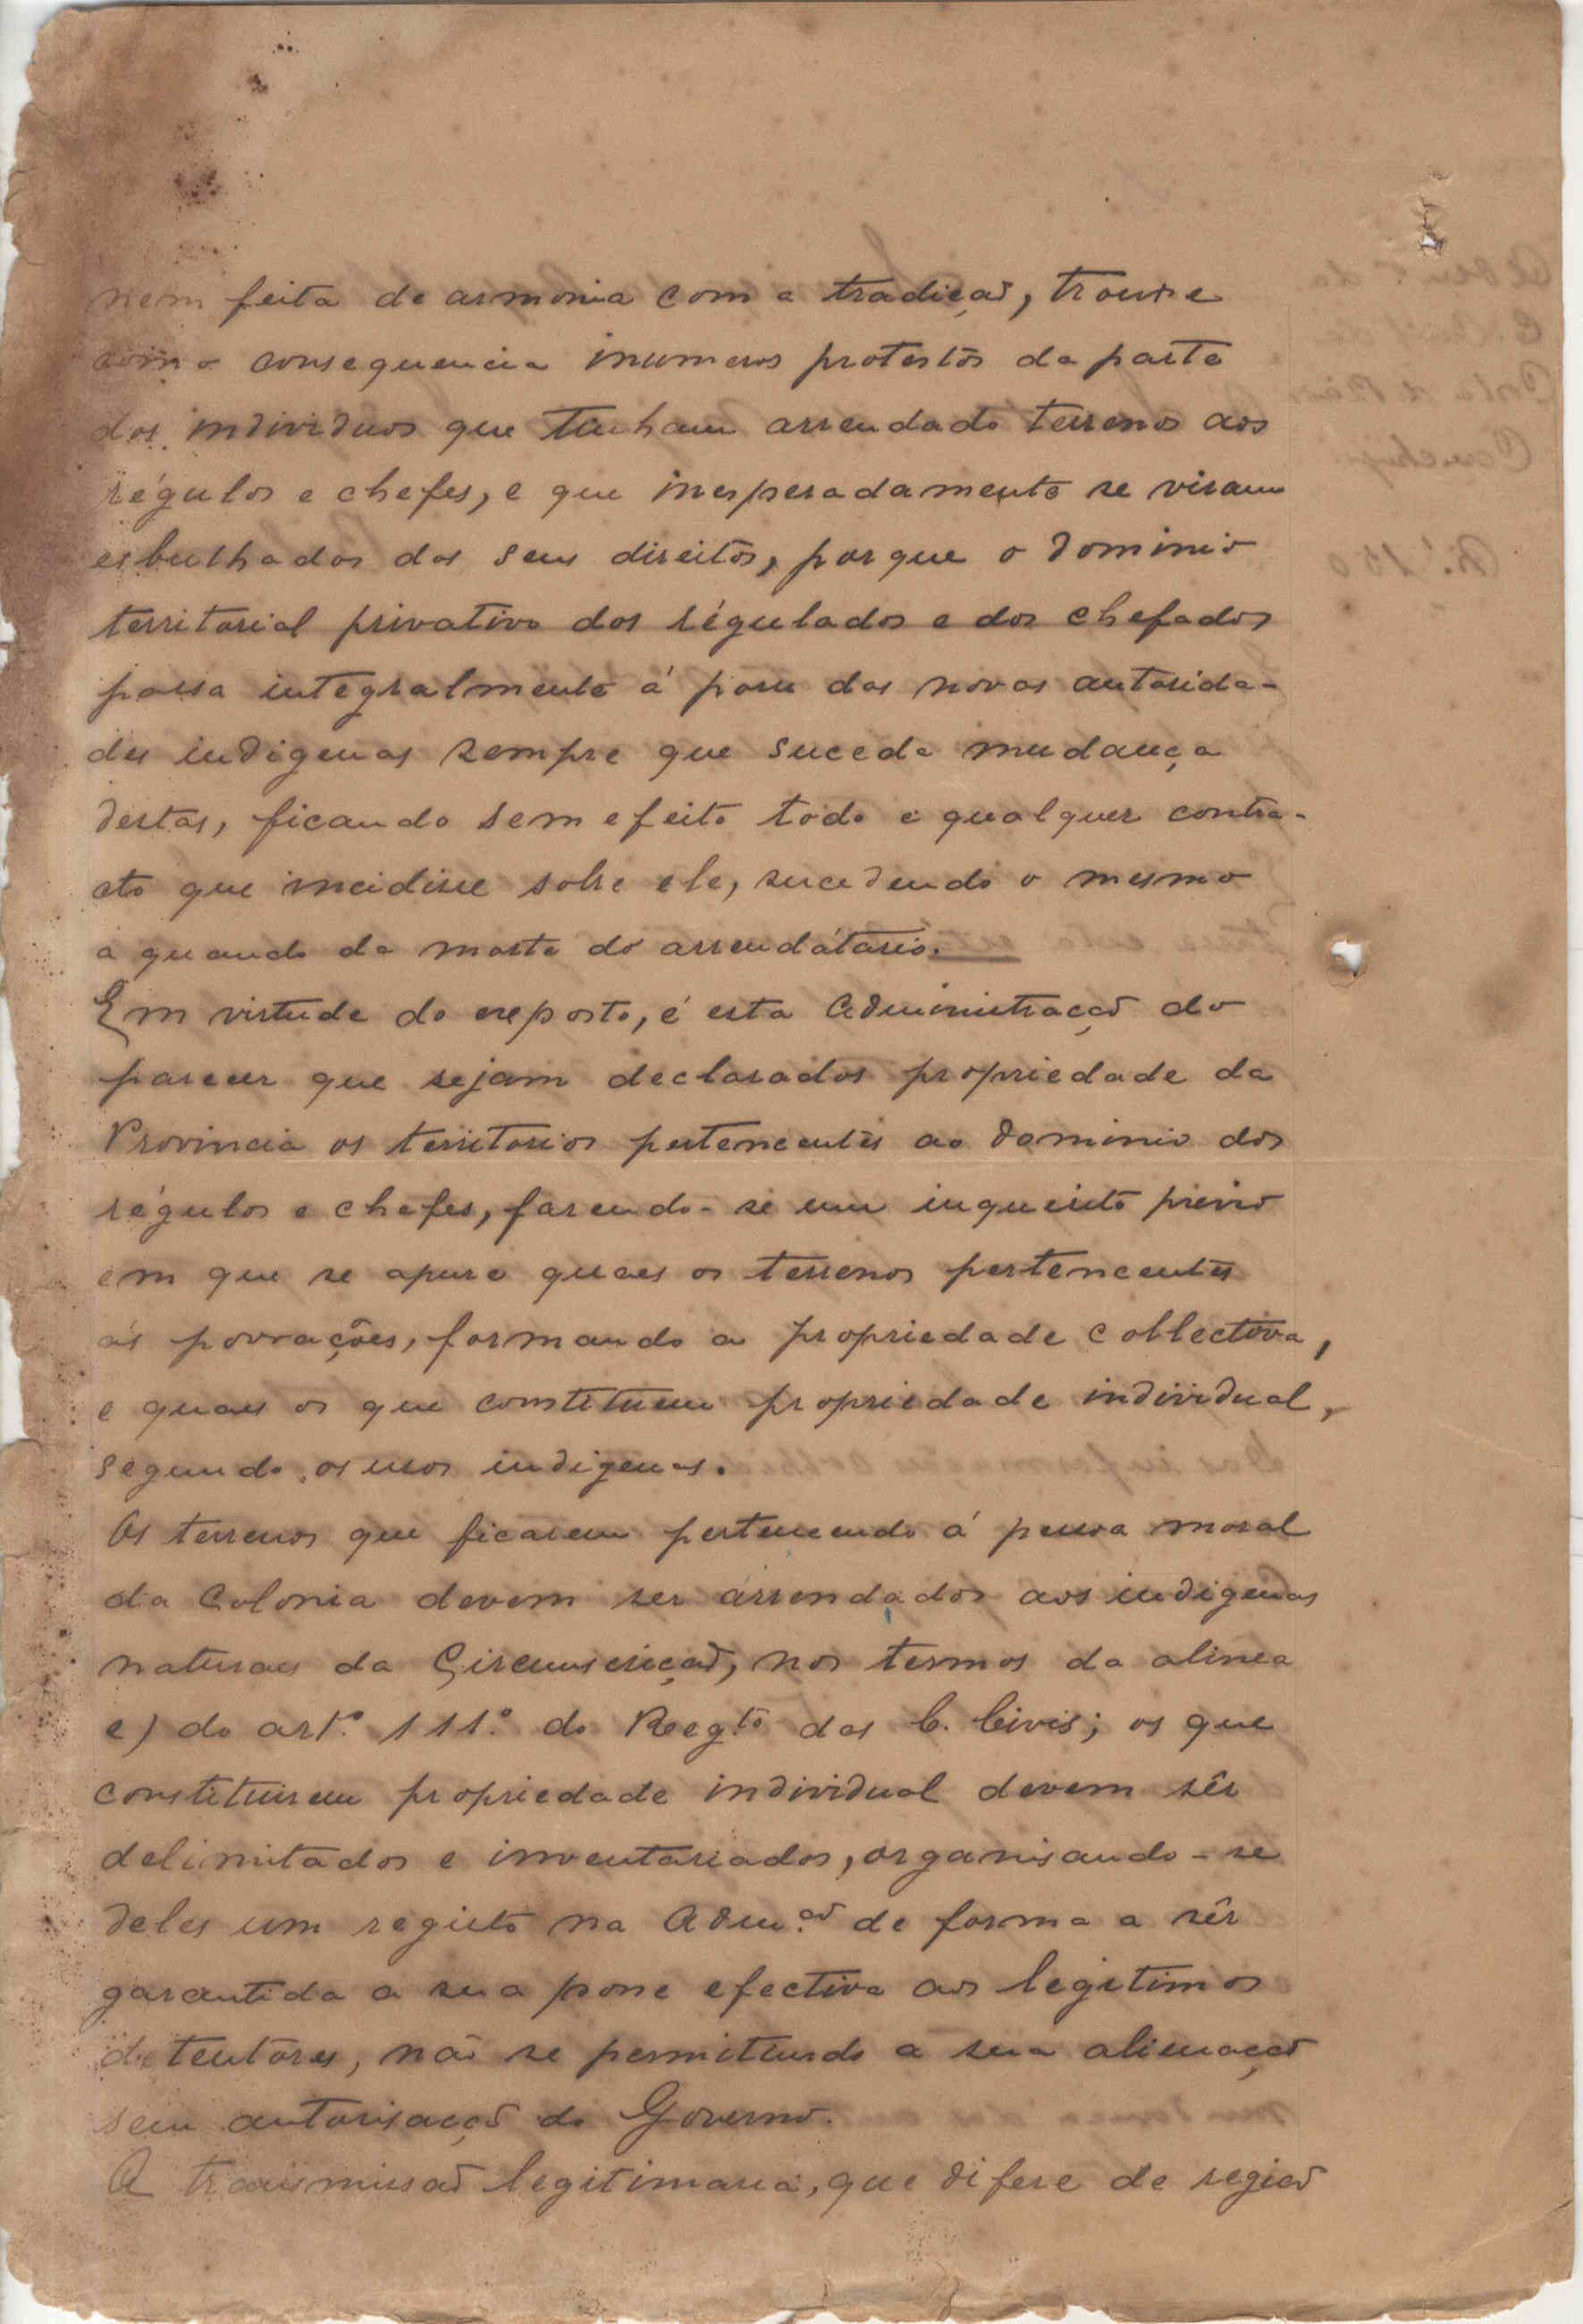 nem feita de armonia com a tradição, trouxe
como consequencia inumeros protestos da parte
dos individuos que tinham arrendado terrenos aos
régulos e chefes, e que inesperadamente se viram
esbulhados dos seus direitos, porque o dominio
territorial privativo dos régulados e dos chefados
passa integralmente á posse das novas autorida-
des indigenas sempre que suceda mudança
destas, ficando sem efeito todo e qualquer contra-
cto que incidisse sobre ele, sucedendo o mesmo
a quando da morte do arrendátario.
Em virtude do exposto, é esta Administração do
parecer que sejam declarados propriedade da
Provincia os territorios pertencentes ao dominio dos
régulos e chefes, fazendo-se um inquerito prévio
em que se apure quaes os terrenos pertencentes
ás povoações, formando a propriedade collectiva,
e quaes os que constituem propriedade individual,
segundo os usos indigenas.
Os terrenos que ficarem pertencendo á pessoa moral
da Colonia devem ser arrendados aos indigenas
naturaes da Circunscrição, nos termos da alinea
e) do artº. 111º. do Regto. das C. Civis; os que
constituirem propriedade individual devem sêr
delimitados e inventariados, organisando-se
deles um registo na Adm.ão de forma a sêr
garantida a sua posse efectiva aos legitimos
detentores, não se permitindo a sua alienação
sem autorisação do Governo.
A transmissão legitimaria, que difere de região